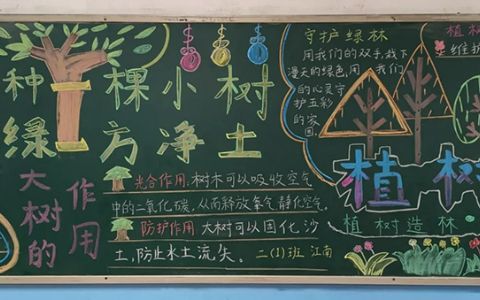 种 棵小树
绿 方净土
大树的
作用
光合作用:树木可以吸收空气
中的二氧化碳,从而释放氧气静化空气.
防护作用:大树可以固化沙
土,防止水土流失。 二(1)班 江南
守护绿林
用我们的双手,栽下
漫天的绿色,用 我们
的心灵守
护五彩
的家
园
植树
维护
植树
植树造林